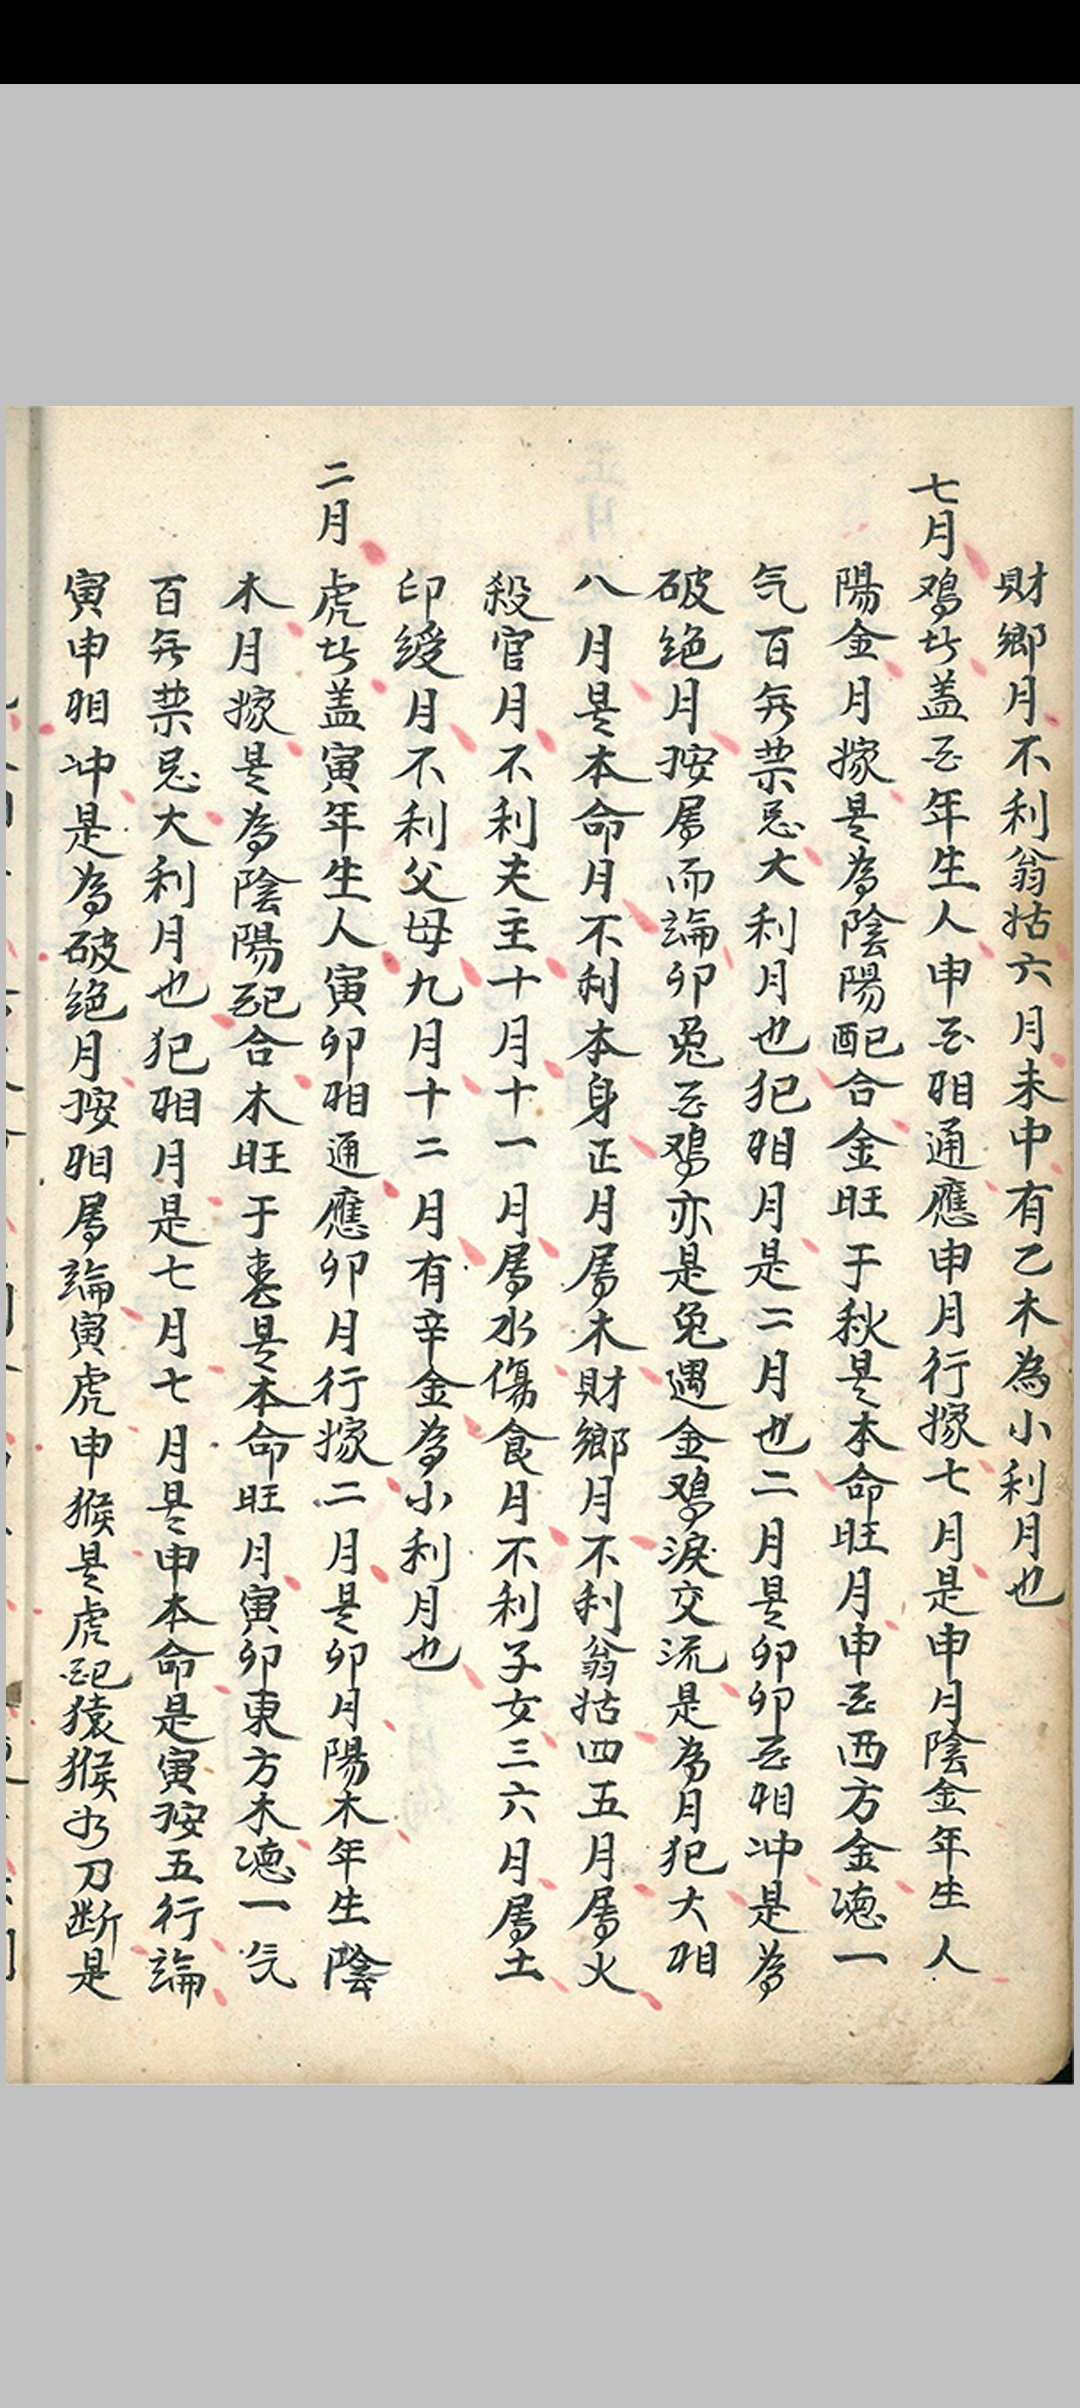 財鄉月不利翁姑六月未中有乙木為小利月也
七月
鸡㐀盖酉年生人申酉相通應申月行嫁七月是申月陰金年生人
陽金月嫁是為陰陽配合金旺于秋是本命旺月申酉西方金德一
气百無禁忌大利月也犯相月是二月也二月是卯卯酉相冲是為
破绝月按属而論卯兔酉鸡亦是兔遇金鸡淚交流是為月犯大相
八月是本命月不利本身正月属木財鄉月不利翁姑四五月属火
殺官月不利夫主十月十一月属水傷食月不利子女三六月属土
印綬月不利父母九月十二月有辛金為小利月也
二月
虎㐀盖寅年生人寅卯相通應卯月行嫁二月是卯月陽木年生陰
木月嫁是為陰陽配合木旺于春是本命旺月寅卯東方木德一气
百無禁忌大利月也犯相月是七月七月是申本命是寅按五行論
寅申相冲是為破绝月按相属論寅虎申猴是虎配猿猴如刀断是